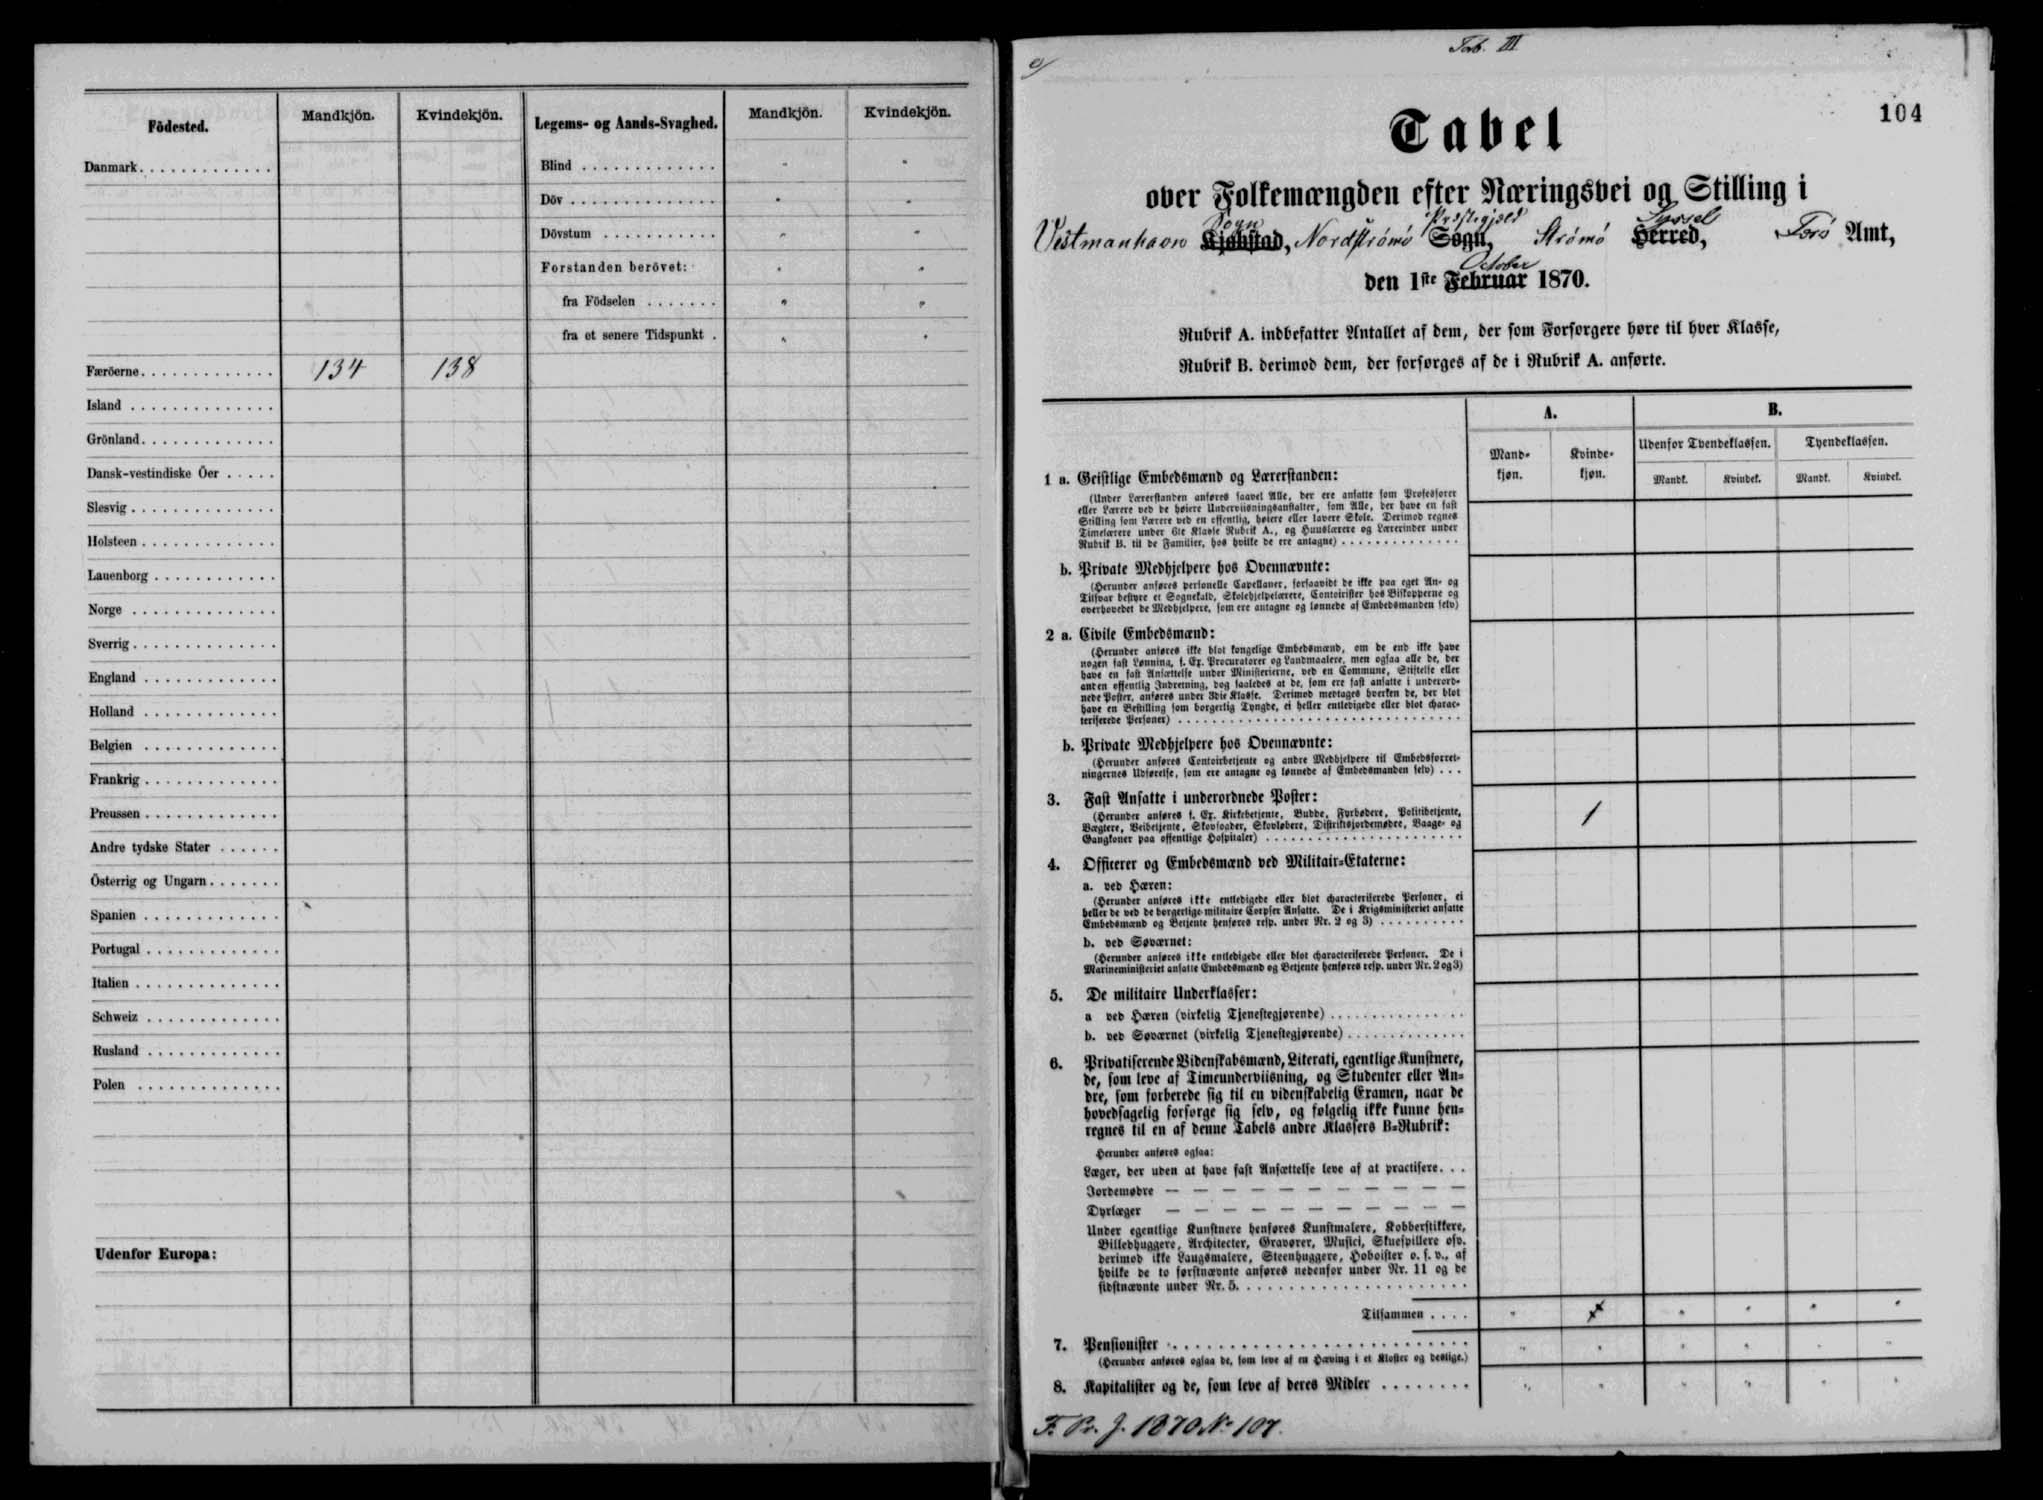 Födested.
Mandkjön.
Kvindekjön.
Legems- og Aands-Svaghed.
Mandkjön.
Kvindekjön.
Danmark
Færöerne 134 138
Island
Grönland
Dansk-vestindiske Öer
Slesvig
Holsteen
Lauenborg
Norge
Sverrig
England
Holland
Belgien
Frankrig
Preussen
Andre tydske Stater
Österrig og Ungarn
Spanien
Portugal
Italien
Schweiz
Rusland
Polen
Udenfor Europa:
Blind " "
Döv " "
Dövstum " "
Forstanden berövet: " "
fra Födselen " "
fra et senere Tidspunkt " "
Tab. III
104
Tabel
over Folkemængden efter Næringsvei og Stilling i
Sogn Præstegjeld Syssel
Vestmanhavn Kjøbstad, Nordströmö Sogn, Strömö Herred, Færö Amt,
October
den 1ste Februar 1870.
Rubrik A. indbefatter Antallet af dem, der som Forsørgere høre til hver Klasse,
Rubrik B. derimod dem, der forsørges af de i Rubrik A. anførte.
A.
B.
Mand-
kjøn.
Kvinde-
kjøn.
Udenfor Tyendeklassen.
Tyendeklassen.
Mandk. Kvindek. Mandk. Kvindek.
1 a. Geistlige Embedsmænd og Lærerstanden:
(Under Lærerstanden anføres saavel Alle, der ere ansatte som Professorer
eller Lærere ved de høiere Underviisningsanstalter, som Alle, der have en fast
Stilling som Lærere ved en offentlig, høiere eller lavere Skole. Derimod regnes
Timelærere under 6te Klasse Rubrik A., og Huuslærere og Lærerinder under
Rubrik B. til de Familier, hos hvilke de ere antagne)
b. Private Medhjelpere hos Ovennævnte:
(Herunder anføres personelle Capellaner, forsaavidt de ikke paa eget An- og
Tilsvar bestyre et Sognekald, Skolehjelpelærere, Contoirister hos Biskopperne og
overhovedet de Medhjelpere, som ere antagne og lønnede af Embedsmanden selv)
2 a. Civile Embedsmænd:
(Herunder anføres ikke blot kongelige Embedsmænd, om de end ikke have
nogen fast Lønning, f. Ex. Procuratorer og Landmaalere, men ogsaa alle de, der
have en fast Ansættelse under Ministerierne, ved en Commune, Stiftelse eller
anden offentlig Indretning, dog saaledes at de, som ere fast ansatte i underord-
nede Poster, anføres under 3die Klasse. Derimod medtages hverken de, der blot
have en Bestilling som borgerlig Tyngde, ei heller entledigede eller blot charac-
teriserede Personer)
b. Private Medhjelpere hos Ovennævnte:
(Herunder anføres Contoirbetjente og andre Medhjelpere til Embedsforret-
ningernes Udførelse, som ere antagne og lønnede af Embedsmanden selv)
3. Fast Ansatte i underordnede Poster: 1
(Herunder anføres f. Ex. Kirkebetjente, Budde, Fyrbødere, Politibetjente,
Vægtere, Veibetjente, Skovfogder, Skovløbere, Distriktsjordemødre, Vaage- og
Gangkoner paa offentlige Hospitaler)
4. Officerer og Embedsmænd ved Militair-Etaterne:
a. ved Hæren:
(Herunder anføres ikke entledigede eller blot characteriserede Personer, ei
heller de ved de borgerlige militaire Corpser Ansatte. De i Krigsministeriet ansatte
Embedsmænd og Betjente henføres resp. under Nr. 2 og 3)
b. ved Søværnet:
(Herunder anføres ikke entledigede eller blot characteriserede Personer. De i
Marineministeriet ansatte Embedsmænd og Betjente henføres resp. under Nr. 2 og 3)
5. De militaire Underklasser:
a ved Hæren (virkelig Tjenestegjørende)
b. ved Søværnet (virkelig Tjenestegjørende)
6. Privatiserende Videnskabsmænd, Literati, egentlige Kunstnere,
de, som leve af Timeunderviisning, og Studenter eller An-
dre, som forberede sig til en videnskabelig Examen, naar de
hovedsagelig forsørge sig selv, og følgelig ikke kunne hen-
regnes til en af denne Tabels andre Klassers B-Rubrik:
Herunder anføres ogsaa:
Læger, der uden at have fast Ansættelse leve af at practisere
Jordemødre — — — — — — — — — — —
Dyrlæger — — — — — — — — — — —
Under egentlige Kunstnere henføres Kunstmalere, Kobberstikkere,
Billedhuggere, Architecter, Gravører, Musici, Skuespillere osv.
derimod ikke Laugsmalere, Steenhuggere, Hoboister o. s. v., af
hvilke de to førstnævnte anføres nedenfor under Nr. 11 og de
sidstnævnte under Nr. 5.
Tilsammen " " " " "
7. Pensionister " " " " " "
(Herunder anføres ogsaa de, som leve af en Hæving i et Kloster og deslige.)
8. Kapitalister og de, som leve af deres Midler " " " " " "
F. Pr. J. 1870 No 107.